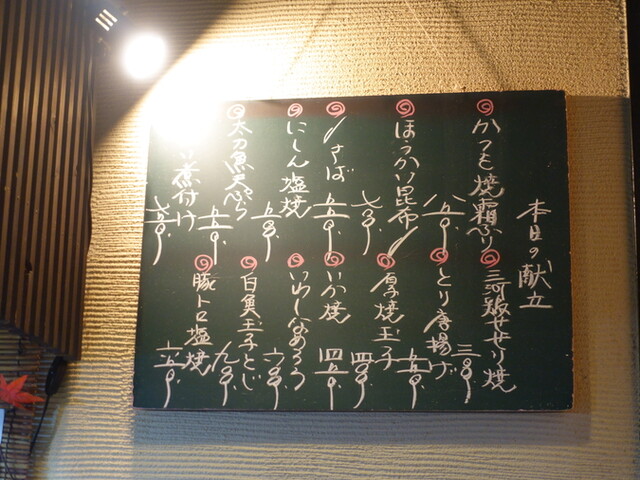 本日の献立
かつを焼霜ぶり
八五〇
ほっかい昆布〆さば
七三〇
五五〇
にしん塩焼
五五〇
太刀魚天ぷら
五五〇
煮付け
七五〇
三河鶏せせり焼
三〇〇
とり唐揚げ
五五〇
厚焼玉子
四〇〇
いか焼
四五〇
いわしなめろう
六〇〇
白魚玉子とじ
九〇〇
豚トロ塩焼
六五〇